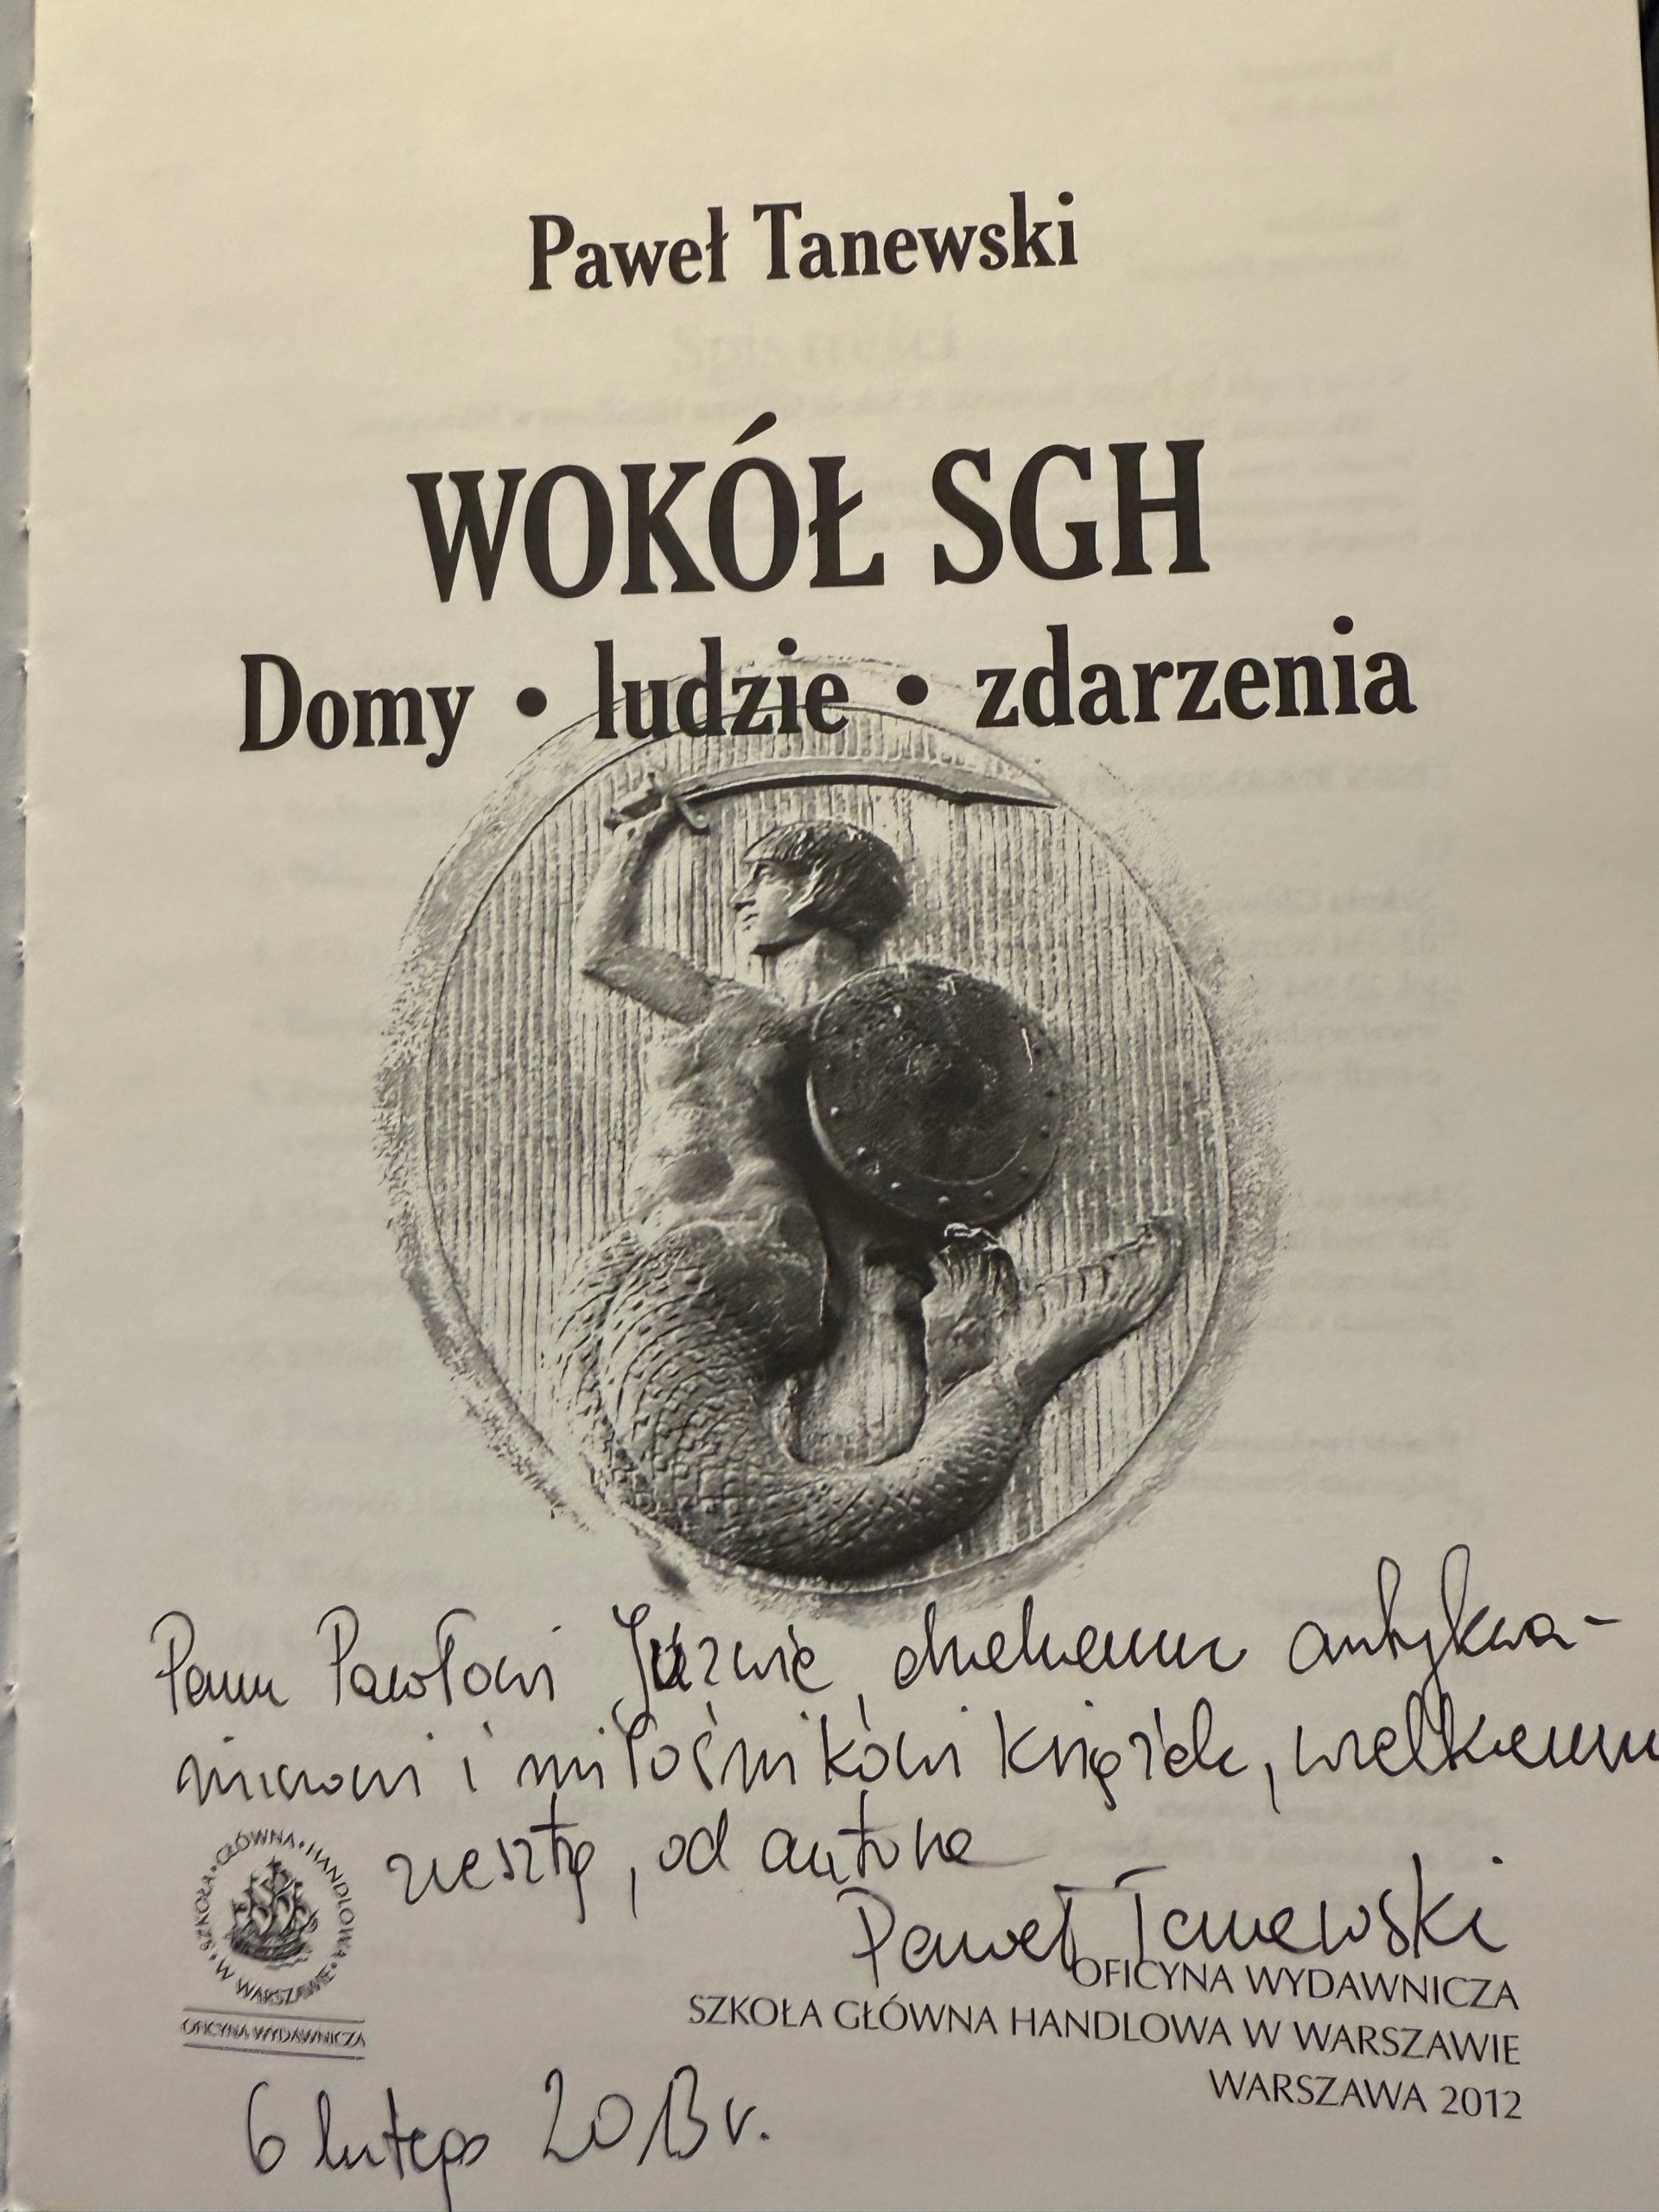 Paweł Tanewski
WOKÓŁ SGH
Domy • ludzie • zdarzenia
Panu Pawłowi antykwa-
riuszowi i miłośnikowi książek, wielkiemu
zresztą, od autora
Paweł Tanewski
SZKOŁA • GŁÓWNA • HANDLOWA • W WARSZAWIE •
OFICYNA WYDAWNICZA
OFICYNA WYDAWNICZA
SZKOŁA GŁÓWNA HANDLOWA W WARSZAWIE
WARSZAWA 2012
6 lutego 2013 r.